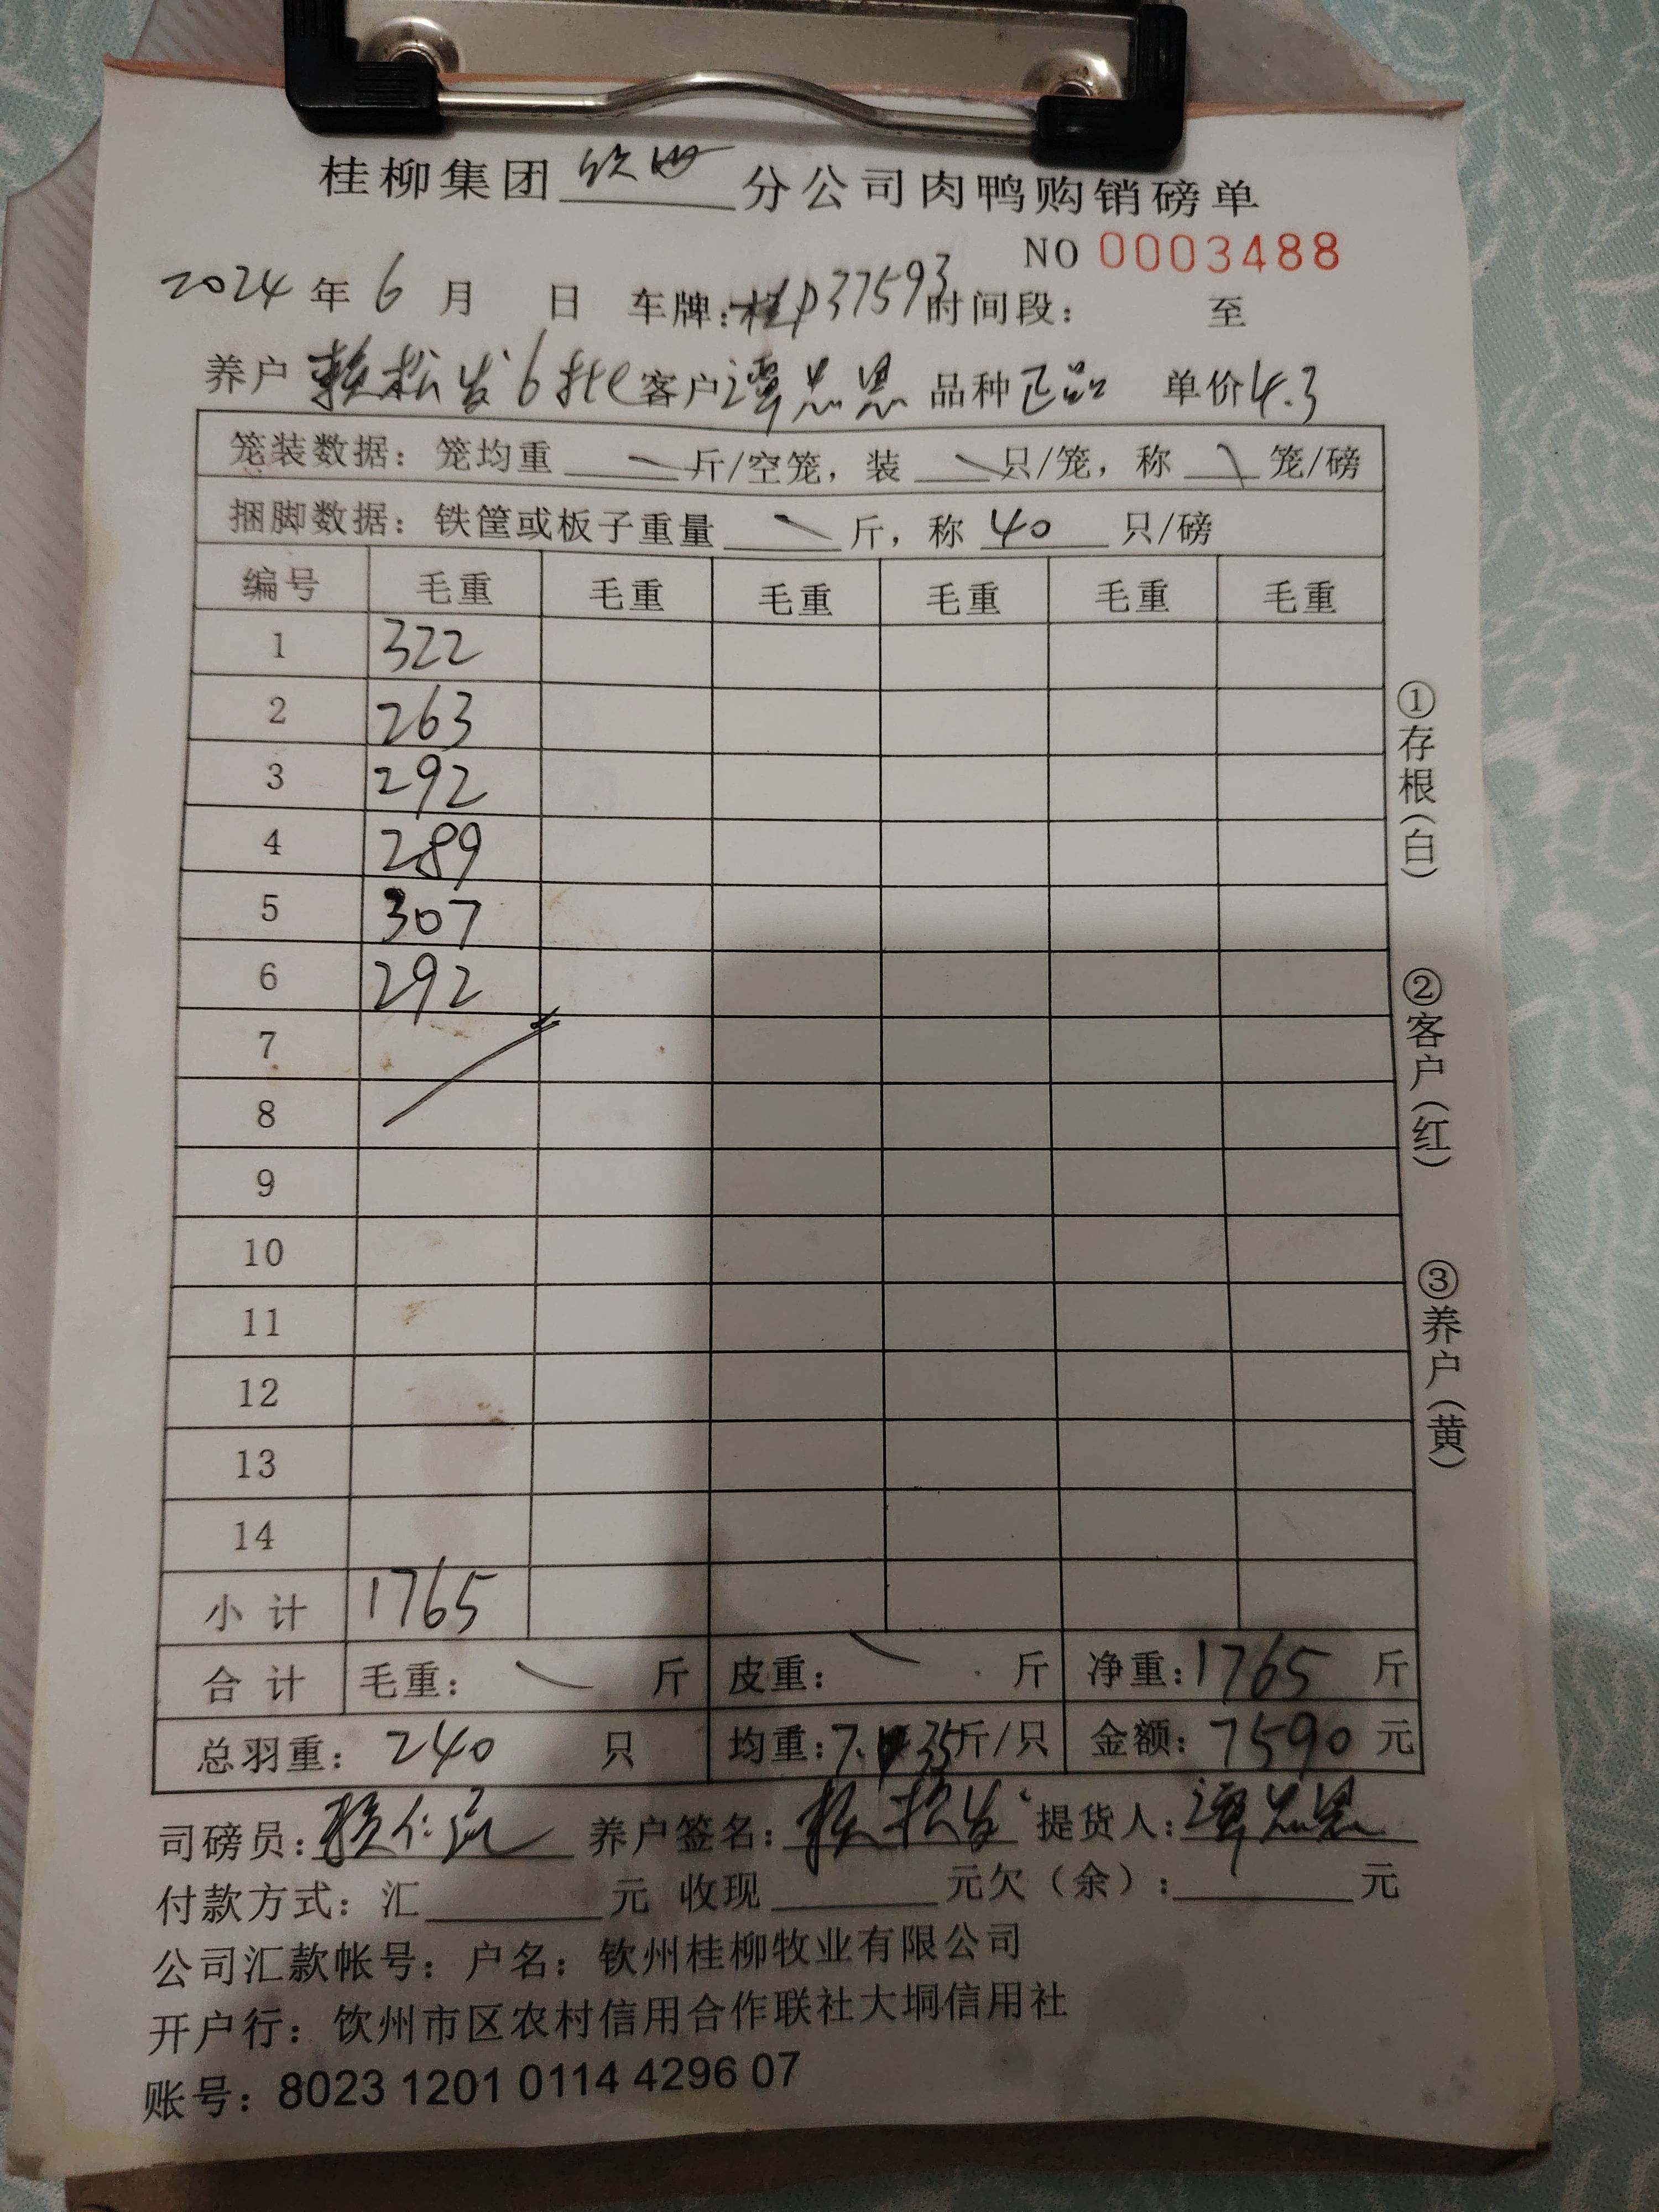 桂柳集团 钦州 分公司肉鸭购销磅单
NO 0003488
2024 年 6 月 日 车牌:桂P37593 时间段: 至
养户 赖松发 6批 客户 谭忠恩 品种 正品 单价 4.3
笼装数据: 笼均重 斤/空笼, 装 只/笼, 称 笼/磅
捆脚数据: 铁筐或板子重量 斤, 称 40 只/磅
编号 毛重 毛重 毛重 毛重 毛重 毛重
1 322
2 263
3 292
4 289
5 307
6 292
7
8
9
10
11
12
13
14
小计 1765
合计 毛重: 斤 皮重: 斤 净重: 1765 斤
总羽重: 240 只 均重: 7.35 斤/只 金额: 7590 元
司磅员: 养户签名: 赖松发 提货人: 谭忠恩
付款方式: 汇 元 收现 元欠(余): 元
公司汇款帐号: 户名: 钦州桂柳牧业有限公司
开户行: 钦州市区农村信用合作联社大垌信用社
账号: 8023 1201 0114 4296 07
①存根(白)
②客户(红)
③养户(黄)